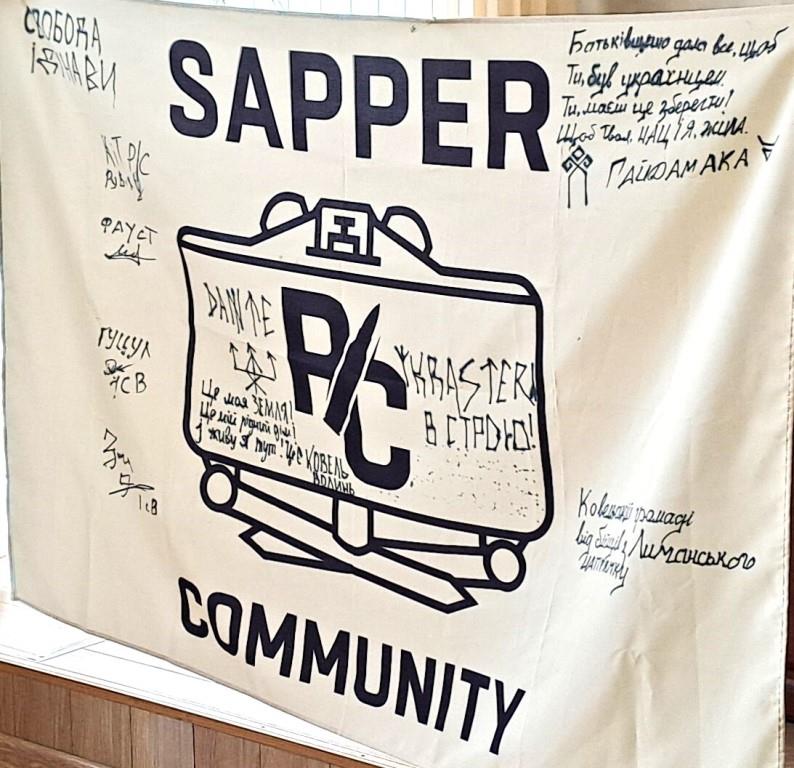 СВОБОДА
І ЗНАВИ
SAPPER
Батьківщино дала все, щоб
Ти, був українцем.
Ти, маєш це зберегти!
Щоб Твоя, НАЦІЯ, ЖИЛА.
ГАЙДАМАКА
Р/С
ФАУСТ
DANTE
P/C
KRASTER
В СТРОЮ!
Це моя ЗЕМЛЯ!
Це мій рідний дім!
І живу я тут! ЦЕ КОВЕЛЬ
ВОЛИНЬ
ГУЦУЛ
ІСВ
ІСВ
Ковельській громаді
від бійців з Лиманського
напрямку
COMMUNITY